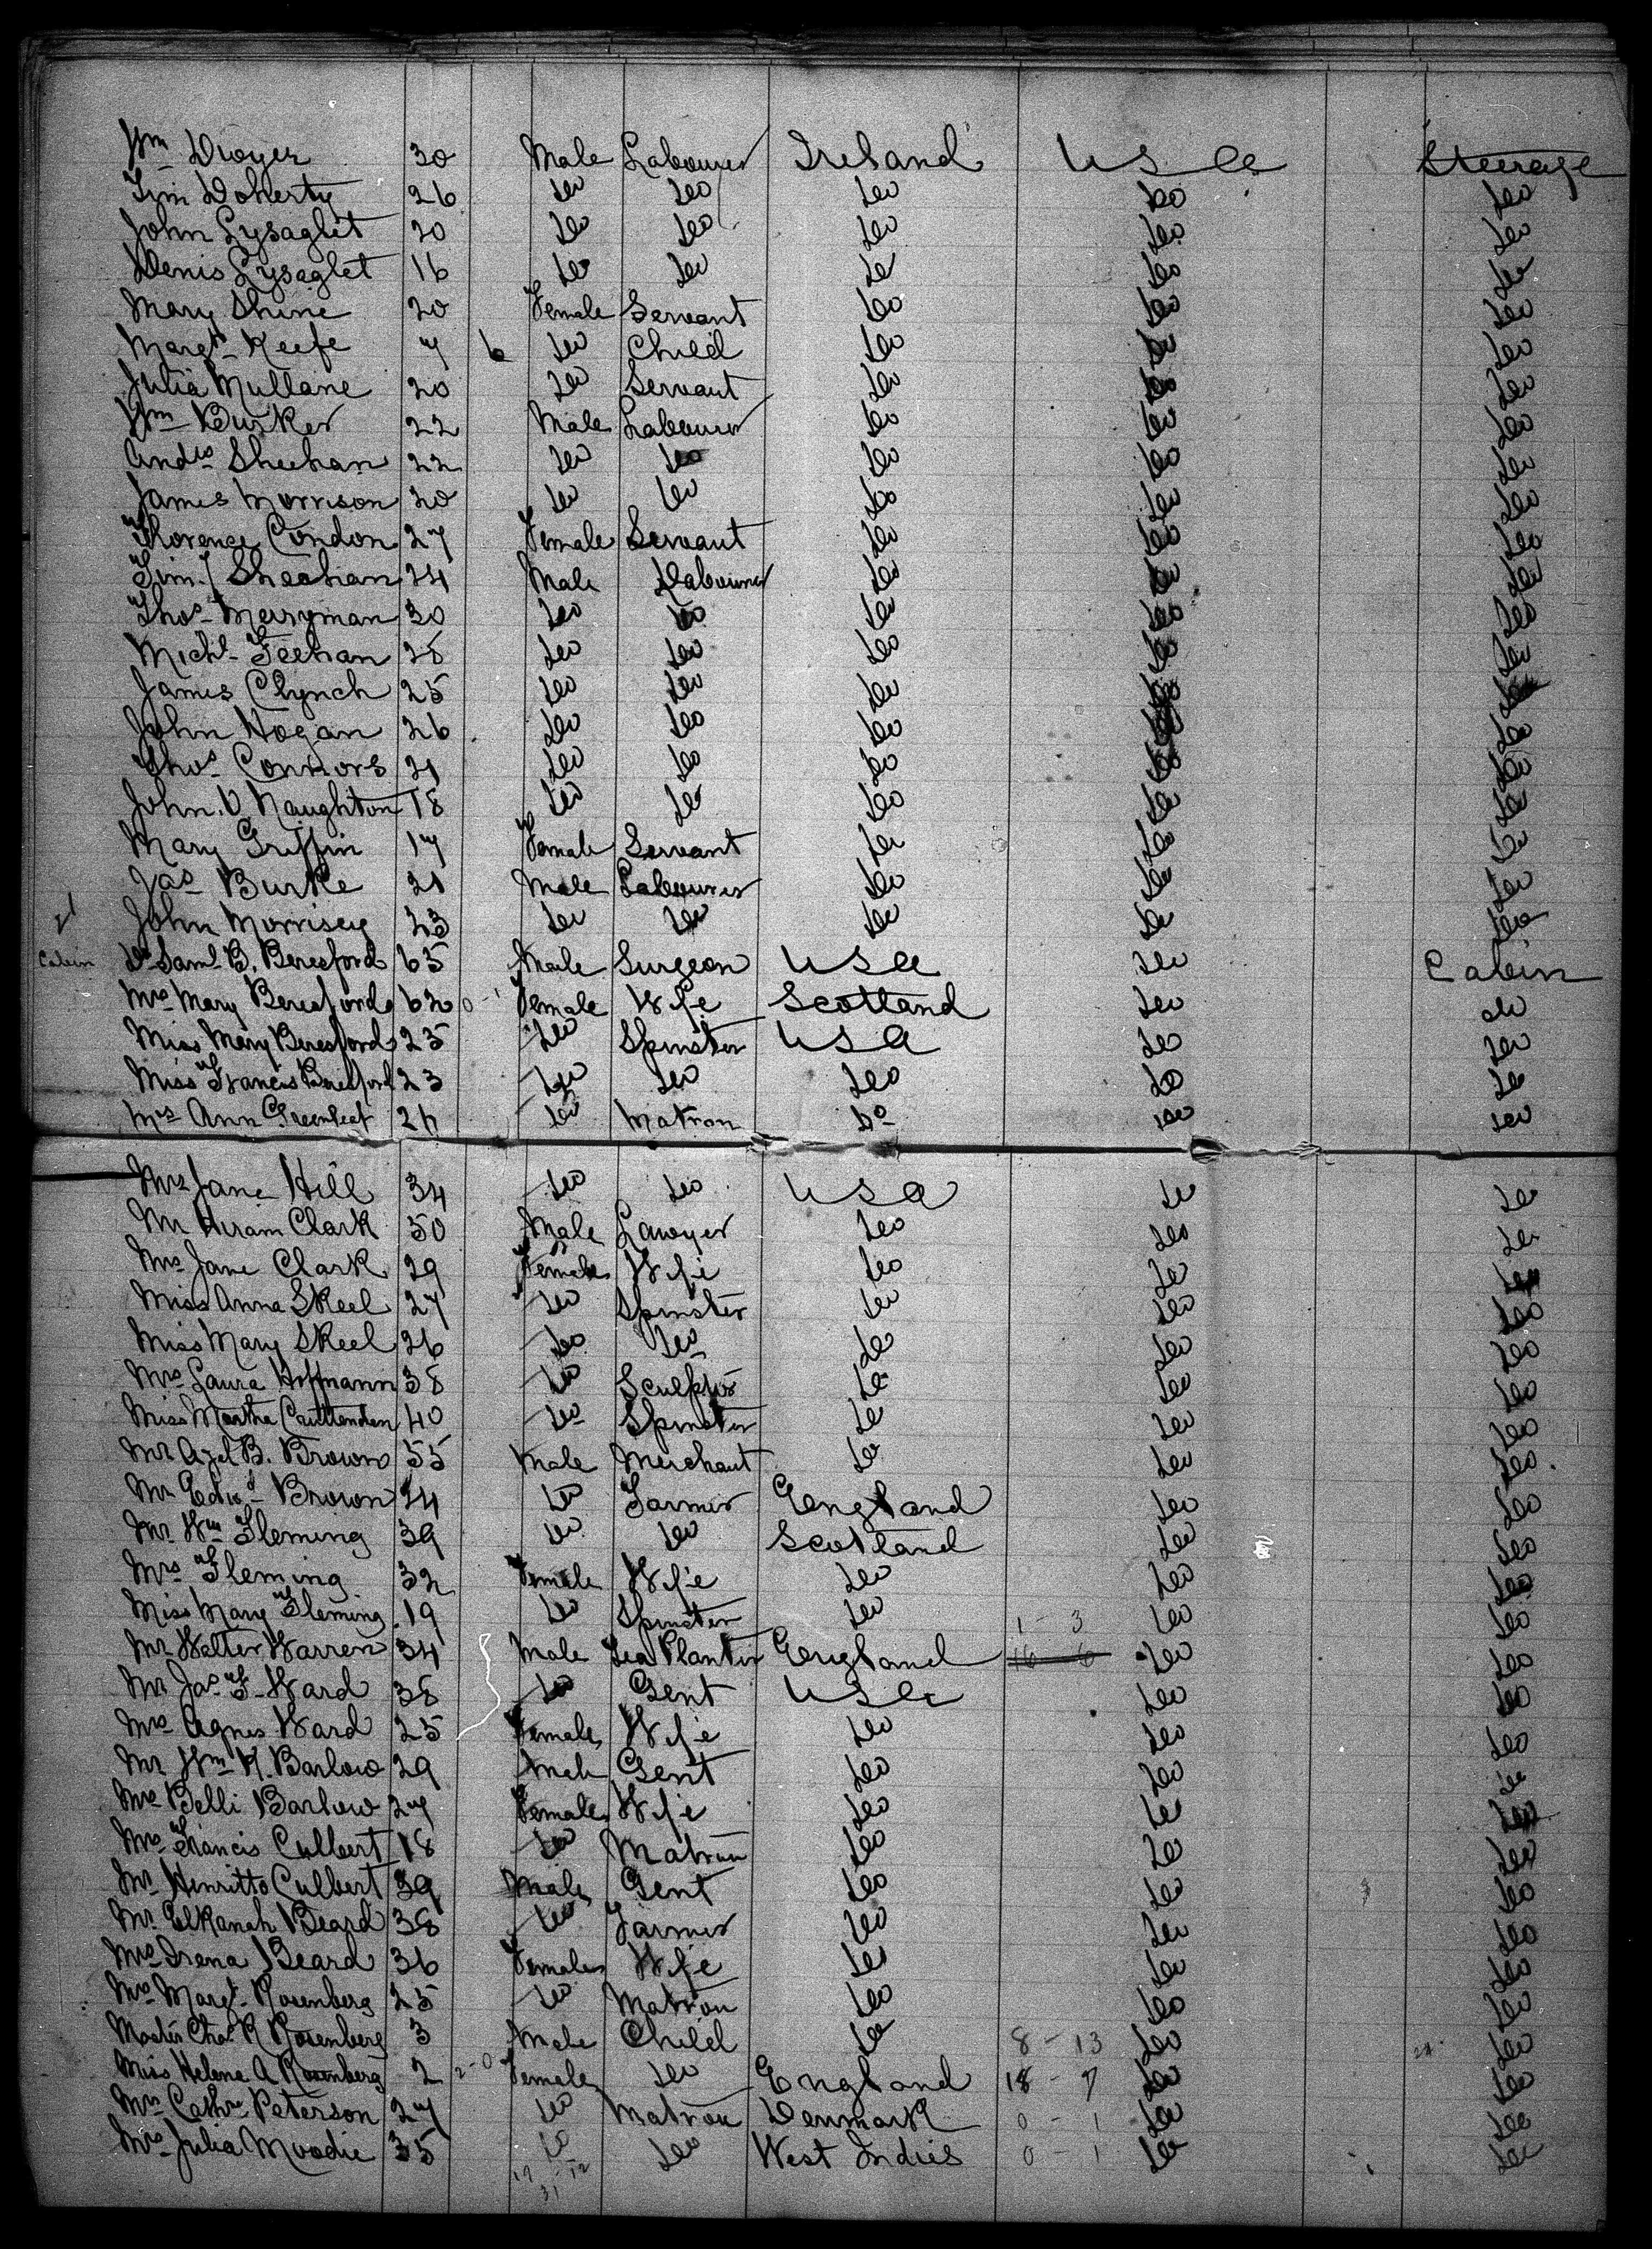 Wm Dwyer 30 Male Labourer Ireland USA Steerage
Tim Doherty 26 do do do do do
John Lysaght 20 do do do do do
Denis Lysaght 16 do do do do do
Mary Shine 20 Female Servant do do do
Margt Keefe 7 6 do Child do do do
Julia Mullane 20 do Servant do do do
Wm Burke 22 Male Labourer do do do
Andw Sheehan 22 do do do do do
James Morrison 20 do do do do do
Florence Condon 27 Female Servant do do do
Tim J Sheehan 24 Male Labourer do do do
Thos Merryman 30 do do do do do
Michl Feehan 28 do do do do do
James Clynch 25 do do do do do
John Hogan 26 do do do do do
Thos Connors 21 do do do do do
John O Naughton 18 do do do do do
Mary Griffin 17 Female Servant do do do
Jas Burke 21 Male Labourer do do do
John Morrisey 23 do do do do do
Cabin Dr Saml B. Beresford 65 Male Surgeon USA do Cabin
Mrs Mary Beresford 62 0-1 Female Wife Scotland do do
Miss Mary Beresford 25 do Spinster USA do do
Miss Francis Beresford 23 do do do do do
Mrs Ann Greenleaf 26 do Matron Do do do
Mrs Jane Hill 34 do do USA do do
Mr Hiram Clark 50 Male Lawyer do do do
Mrs Jane Clark 29 Female Wife do do do
Miss Anna Skeel 27 do Spinster do do do
Miss Mary Skeel 26 do do do do do
Mrs Laura Hoffmann 38 do Sculptor do do do
Miss Martha Cruttenden 40 do Spinster do do do
Mr Azel B. Brown 55 Male Merchant do do do
Mr Edwd Brown 24 do Farmer England do do
Mr Wm Fleming 39 do do Scotland do do
Mrs Fleming 32 Female Wife do do do
Miss Mary Fleming 19 do Spinster do 1 - 3 do do
Mr Walter Warren 34 Male Tea Planter England 16 6 do do
Mr Jas F Ward 38 do Gent USA do do
Mrs Agnes Ward 25 Female Wife do do do
Mr Wm K. Barlow 29 Male Gent do do do
Mrs Belli Barlow 27 Female Wife do do do
Mrs Francis Culbert 18 do Matron do do do
Mr Henritto Culbert 39 Male Gent do do do
Mr Elkanah Beard 38 do Farmer do do do
Mrs Irena Beard 36 Female Wife do do do
Mrs Margt Rosenberg 25 do Matron do do do
Master Chas R Rosenberg 3 Male Child do 8 - 13 do do
Miss Helena A Rosenberg 2 2-0 Female do England 18 - 7 do do
Mrs Cathe Peterson 27 do Matron Denmark 0 - 1 do do
Mrs Julia Moodie 35 do do West Indies 0 - 1 do do
19 - 12
31